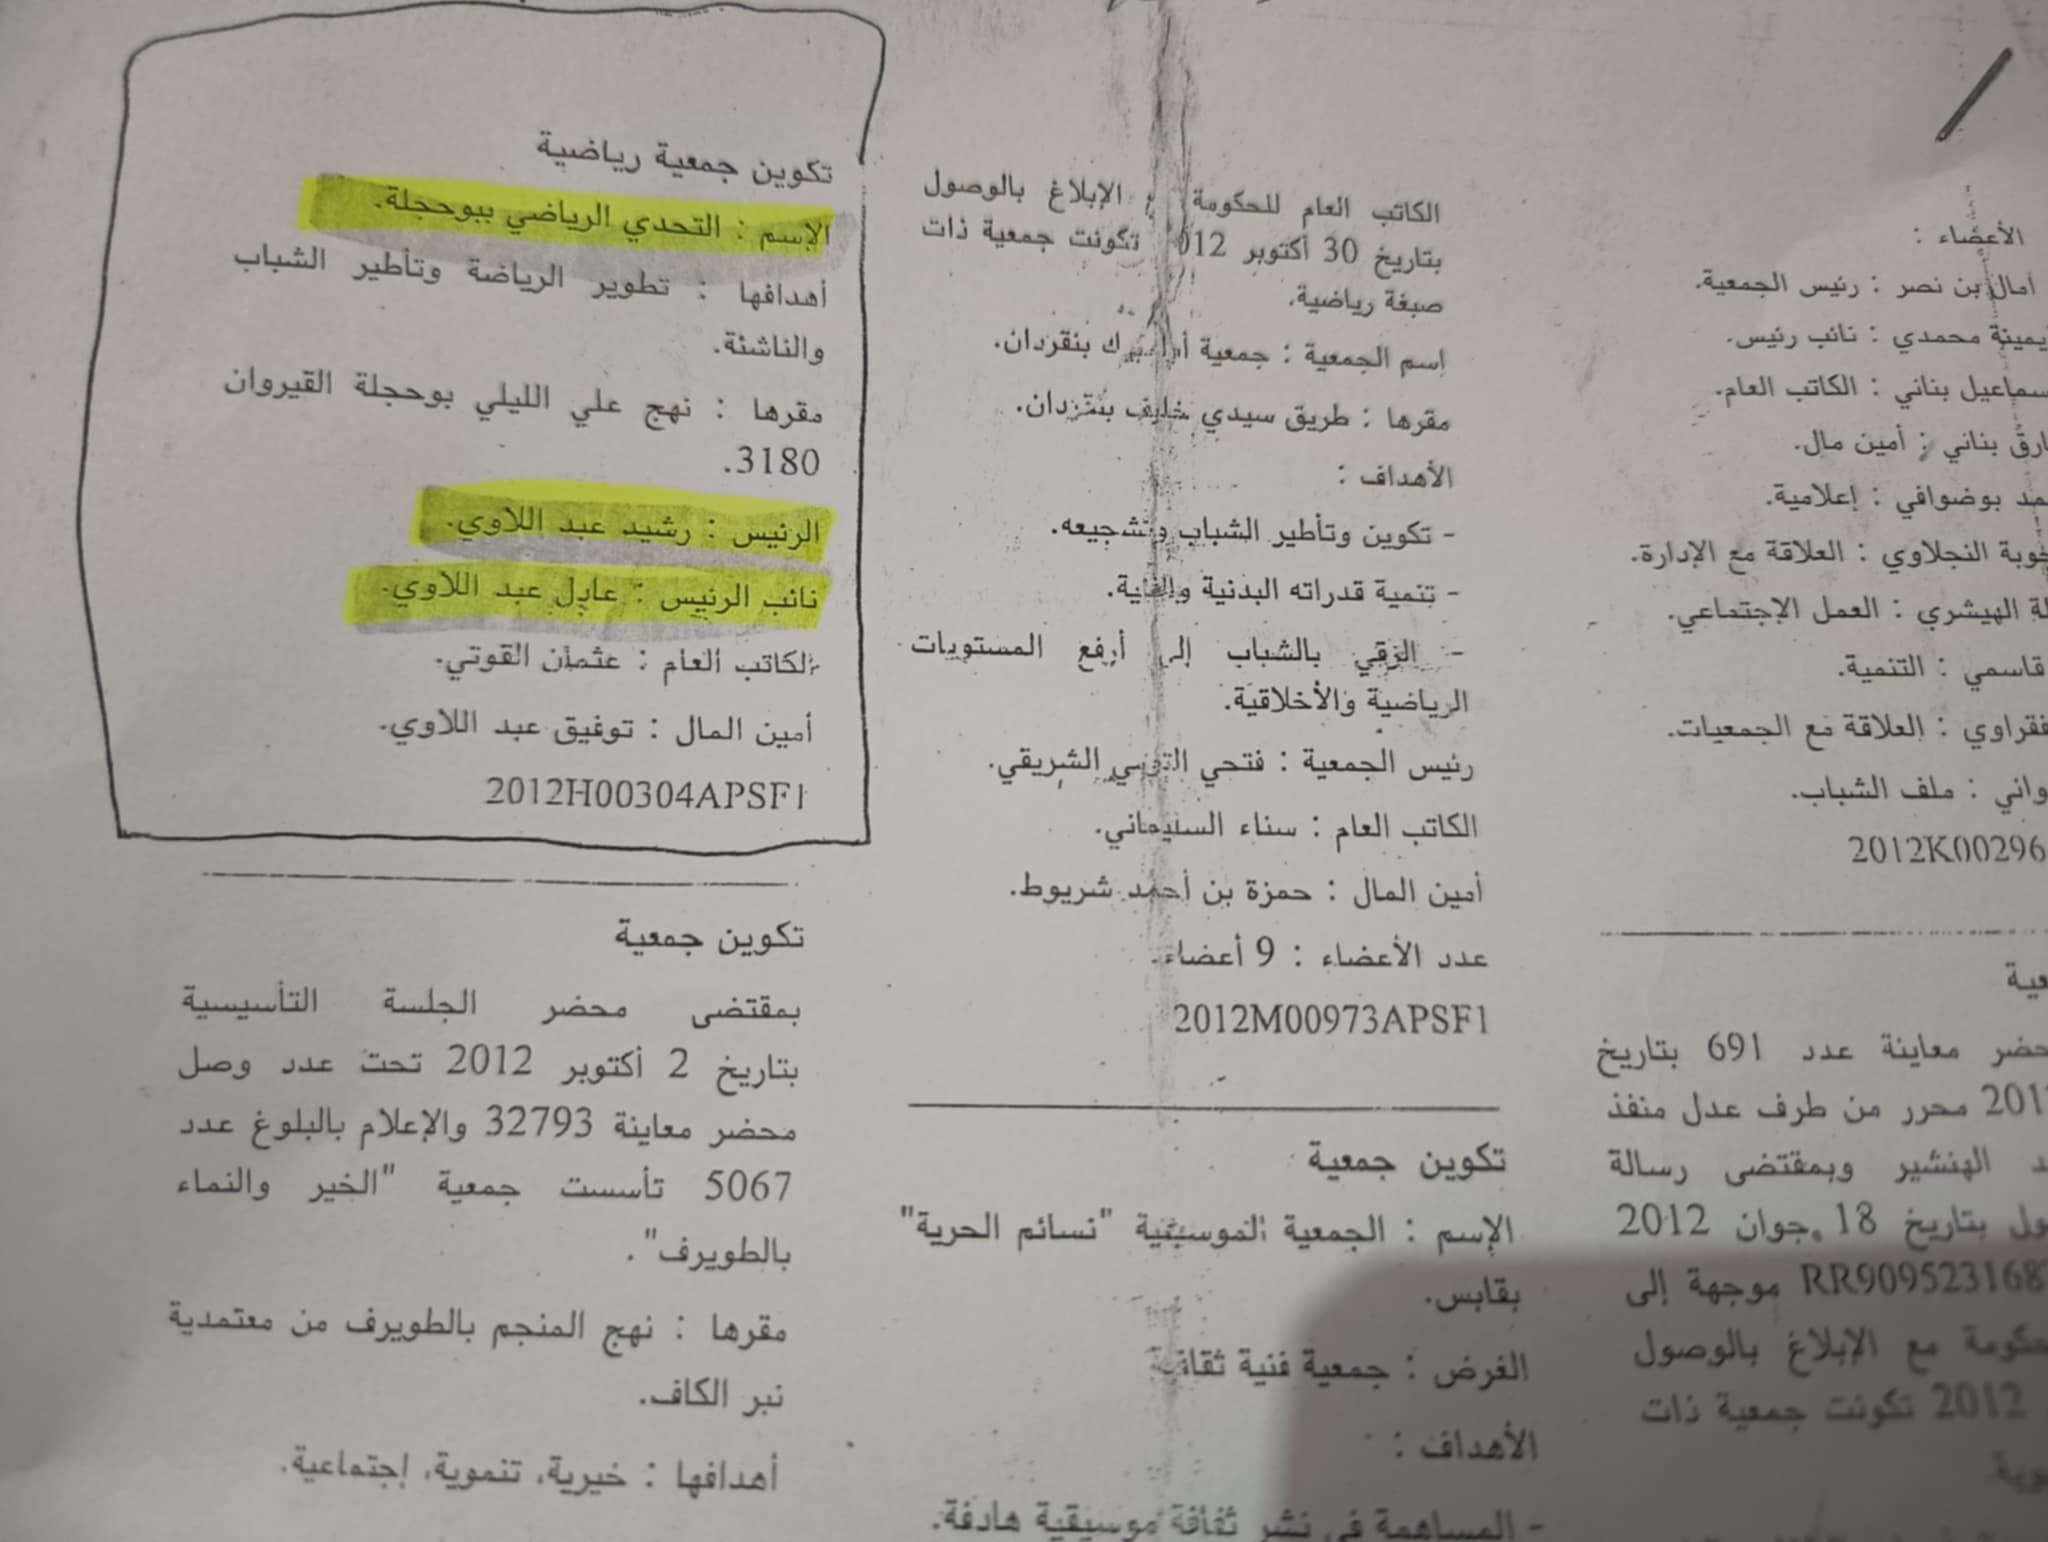 الأعضاء :
آمال بن نصر : رئيس الجمعية.
يمينة محمدي : نائب رئيس.
سماعيل بناني : الكاتب العام.
ارق بناني : أمين مال.
مد بوضوافي : إعلامية.
خوبة النجلاوي : العلاقة مع الإدارة.
لة الهيشري : العمل الإجتماعي.
قاسمي : التنمية.
فقراوي : العلاقة مع الجمعيات.
واني : ملف الشباب.
2012K00296
عية
حضر معاينة عدد 691 بتاريخ
201 محرر من طرف عدل منفذ
د الهنشير وبمقتضى رسالة
ول بتاريخ 18 جوان 2012
RR909523168 موجهة إلى
حكومة مع الإبلاغ بالوصول
2012 تكونت جمعية ذات
الكاتب العام للحكومة الإبلاغ بالوصول
بتاريخ 30 أكتوبر 2012 تكونت جمعية ذات
صبغة رياضية.
اسم الجمعية : جمعية بنقردان.
مقرها : طريق سيدي خليف بنقردان.
الأهداف :
- تكوين وتأطير الشباب وتشجيعه.
- تنمية قدراته البدنية
- الرقي بالشباب إلى أرفع المستويات
الرياضية والأخلاقية.
رئيس الجمعية : فتحي الشريقي.
الكاتب العام : سناء السليماني.
أمين المال : حمزة بن أحمد شريوط.
عدد الأعضاء : 9 أعضاء.
2012M00973APSF1
تكوين جمعية
الإسم : الجمعية الموسيقية "نسائم الحرية"
بقابس.
الغرض : جمعية فنية ثقافية
الأهداف :
- المساهمة في نشر ثقافة موسيقية هادفة.
تكوين جمعية رياضية
الإسم : التحدي الرياضي ببوحجلة.
أهدافها : تطوير الرياضة وتأطير الشباب
والناشئة.
مقرها : نهج علي الليلي بوحجلة القيروان
3180.
الرئيس : رشيد عبد اللاوي.
نائب الرئيس : عادل عبد اللاوي.
الكاتب العام : عثمان القوتي.
أمين المال : توفيق عبد اللاوي.
2012H00304APSF1
تكوين جمعية
بمقتضى محضر الجلسة التأسيسية
بتاريخ 2 أكتوبر 2012 تحت عدد وصل
محضر معاينة 32793 والإعلام بالبلوغ عدد
5067 تأسست جمعية "الخير والنماء
بالطويرف".
مقرها : نهج المنجم بالطويرف من معتمدية
نبر الكاف.
أهدافها : خيرية، تنموية، إجتماعية.